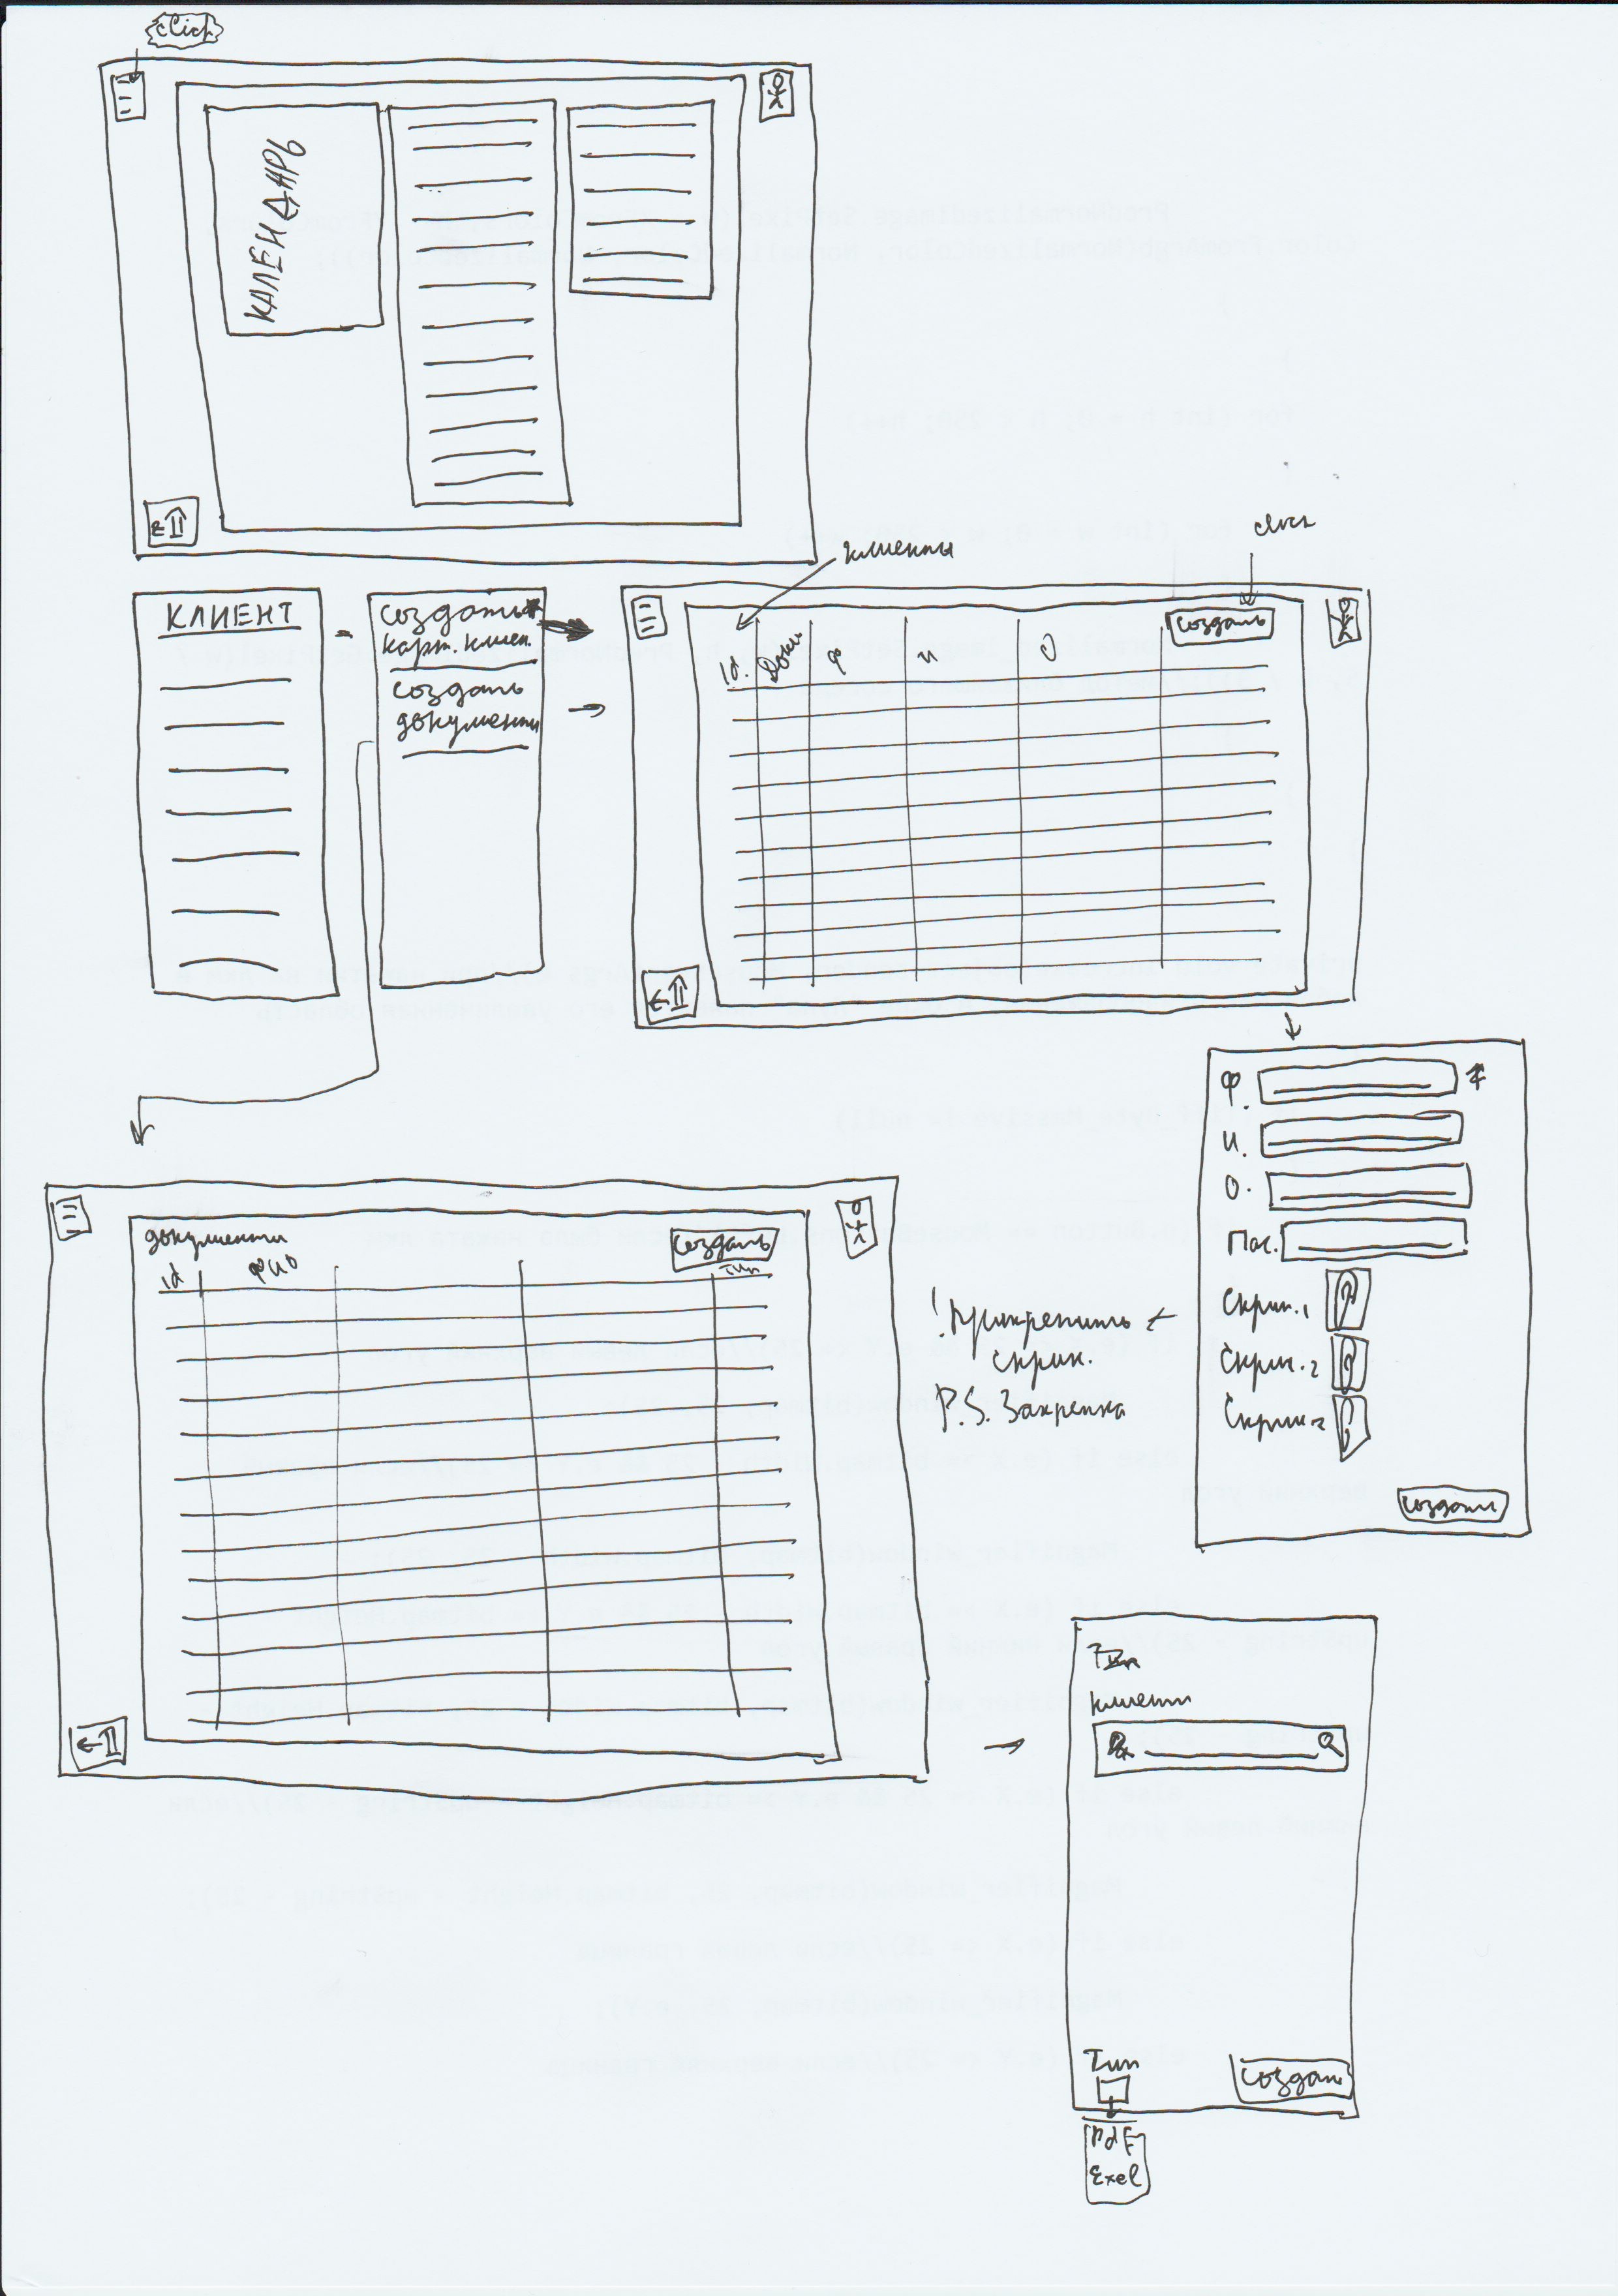 click
КАЛЕНДАРЬ
КЛИЕНТ
создать
карт. клиен.
создать
документы
клиенты
click
создать
Id.
Ф
И
О
Ф.
И.
О.
Пас.
Скрин.1
Скрин.2
Скрин
создать
! Прикрепить
скрин.
P.S. Закрепка
документы
создать
Id
ФИО
тип
клиент
Тип
создать
Pdf
Exel